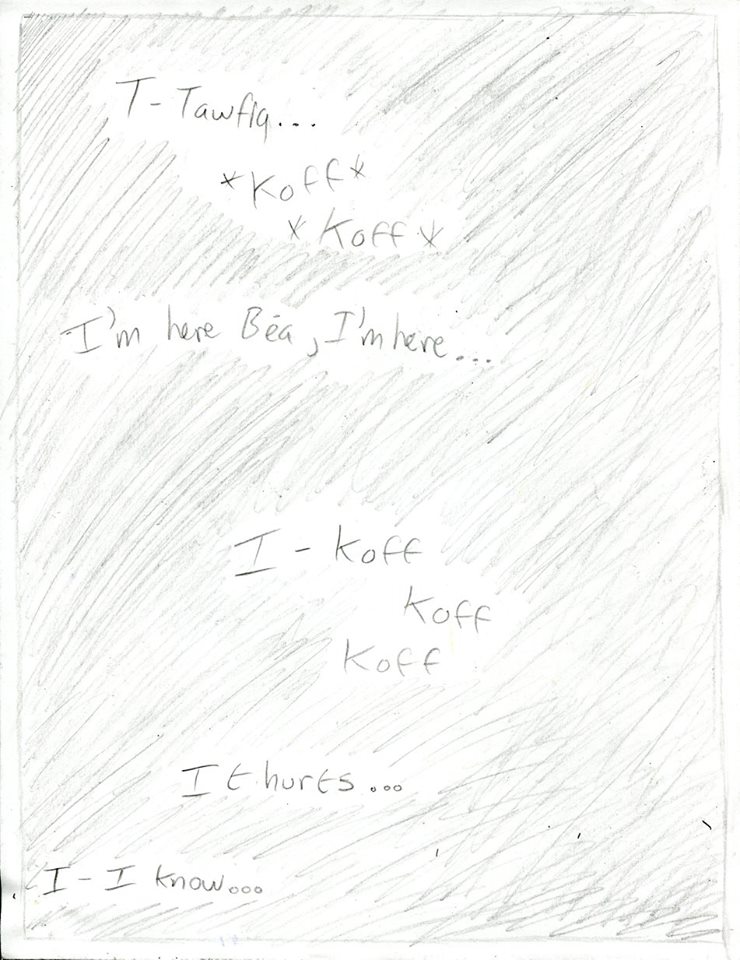 T-Tawfiq...
*Koff*
*Koff*
I'm here Béa, I'm here...
I - Koff
Koff
Koff
It hurts...
I-I know...